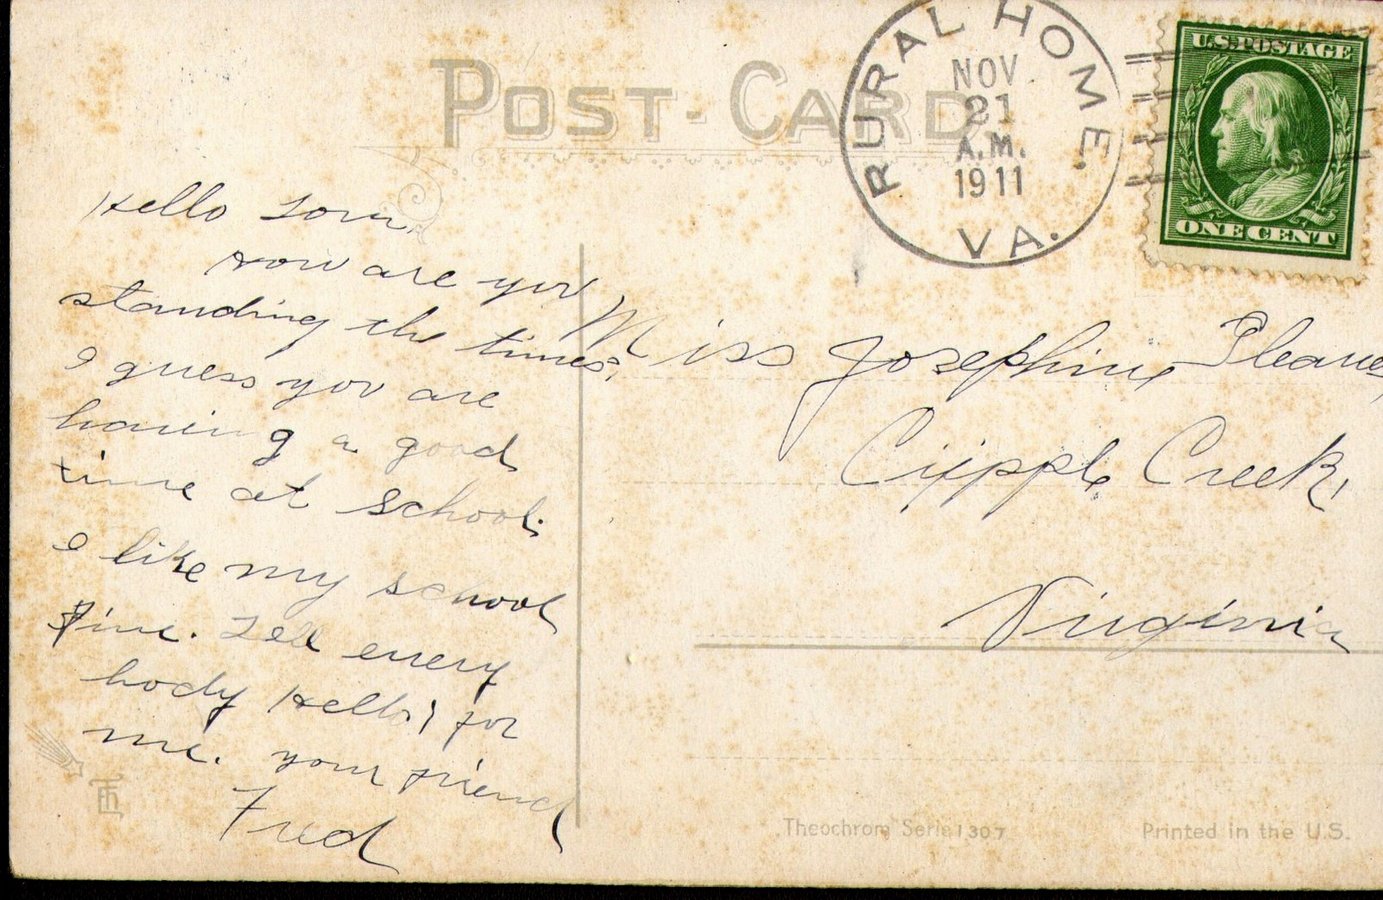 POST-CARD
RURAL HOME.
NOV
21
A.M.
1911
VA.
U.S. POSTAGE
ONE CENT
Hello
How are you
standing the times.
I guess you are
having a good
time at school.
I like my school
fine. Tell every
body Hello, for
me. your friend
Fred
Miss Josephine
Cripple Creek,
Virginia
Theochrom Serie 1307
Printed in the U.S.